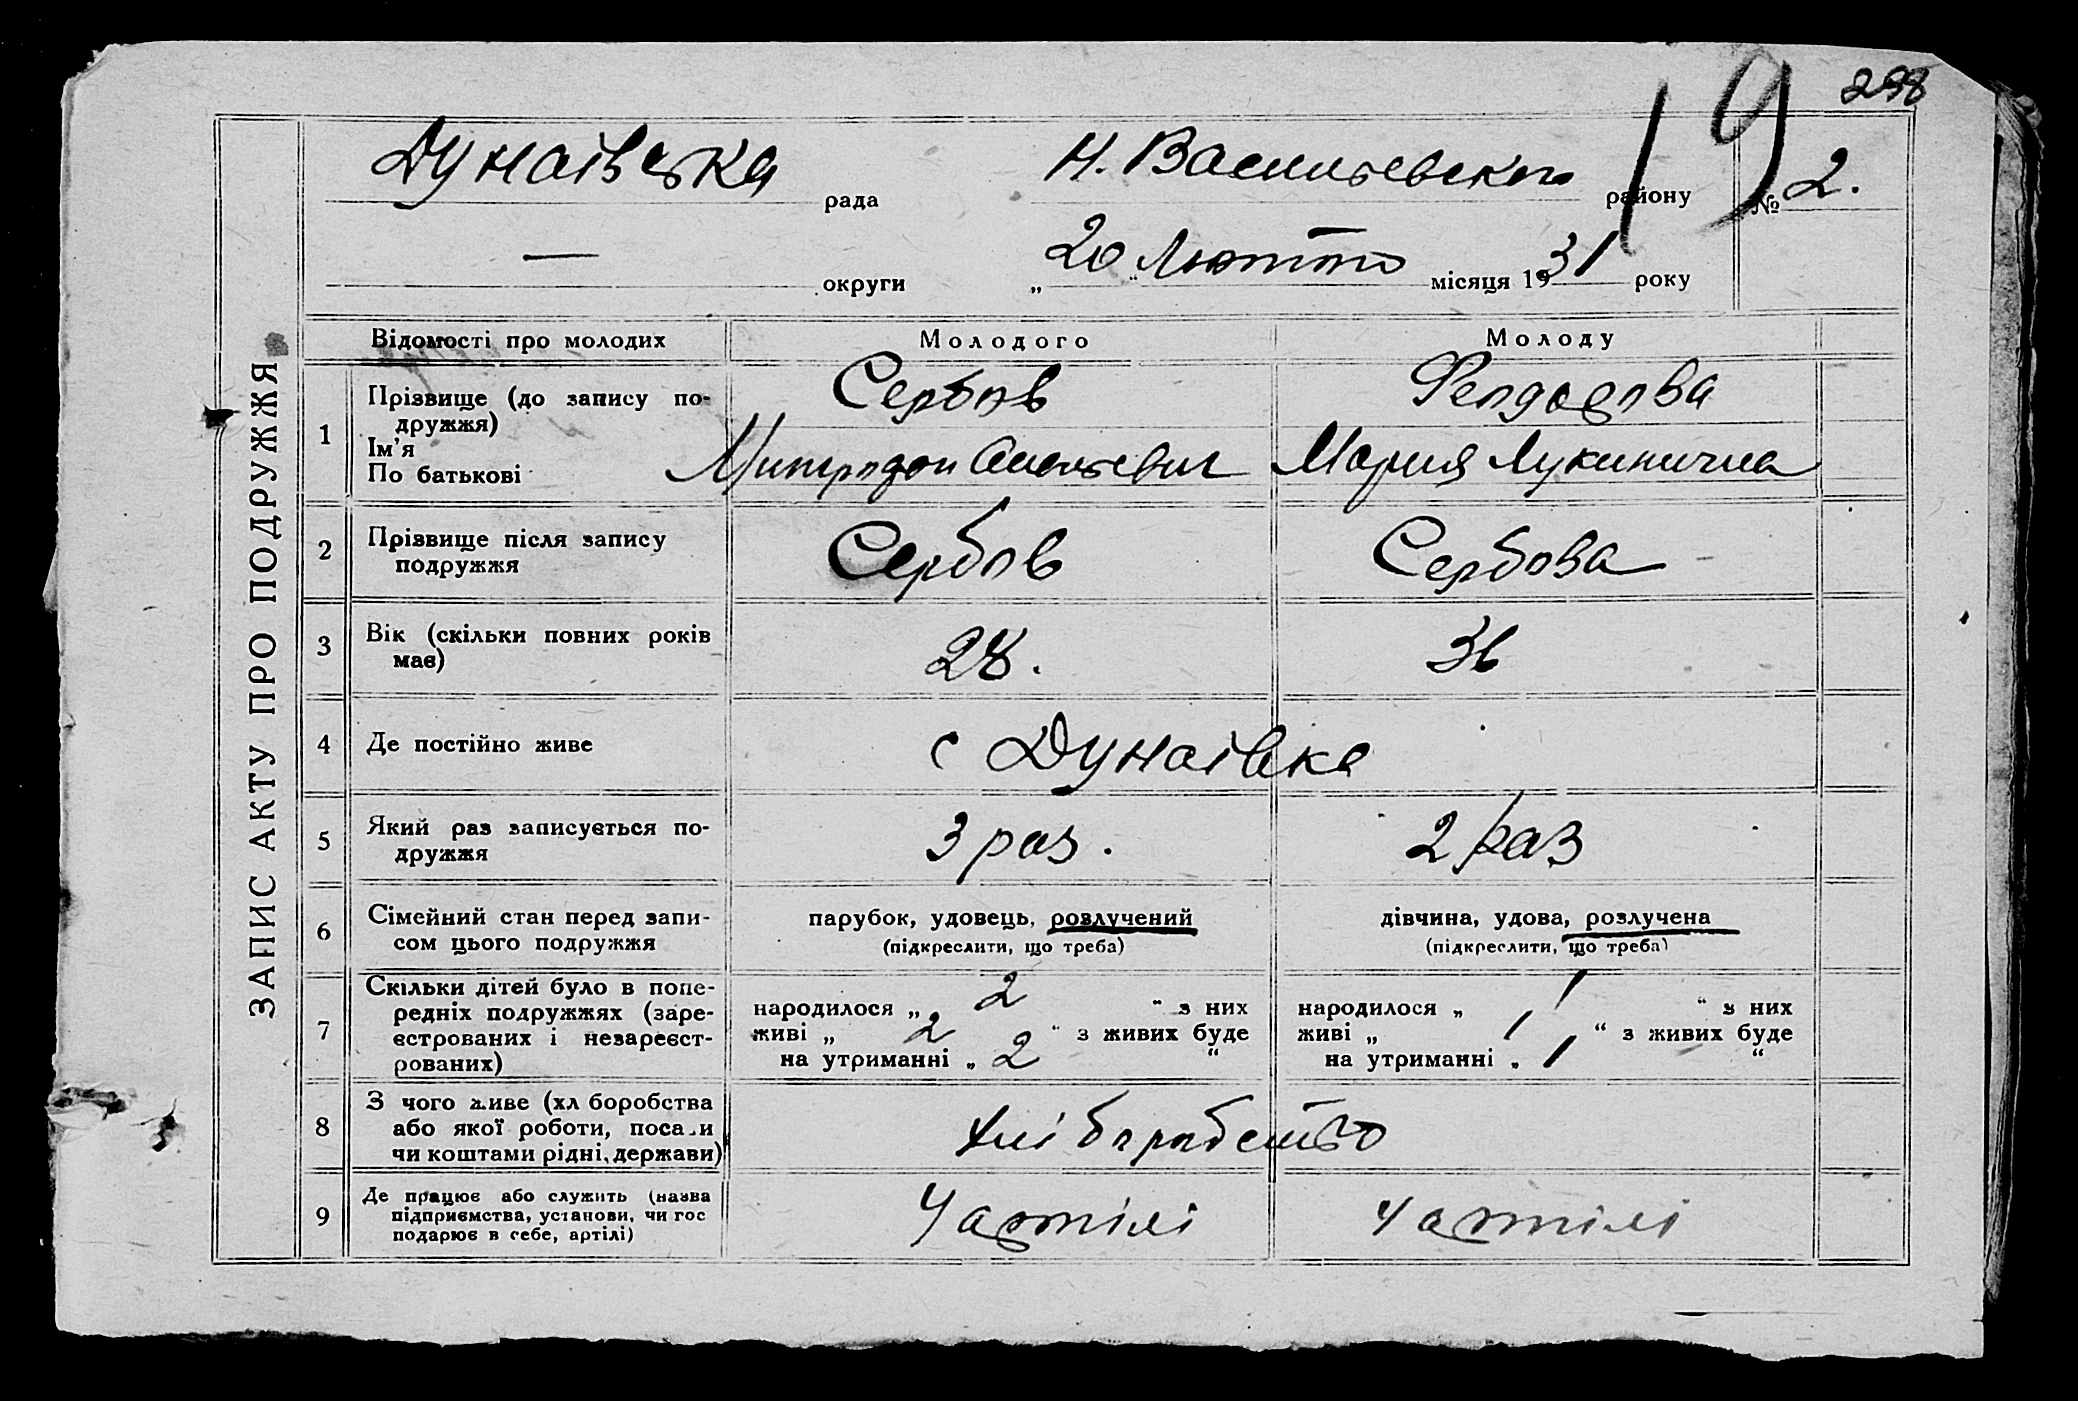 298
19
Дунаівська рада
Н. Васильевского району
№ 2.
— округи
„20“ Лютого місяця 1931 року
ЗАПИС АКТУ ПРО ПОДРУЖЖЯ
Відомості про молодих
Молодого
Молоду
1
Прізвище (до запису по-
дружжя)
Ім’я
По батькові
Сербов
Митродон
Феодорова
Мария Лукинична
2
Прізвище після запису
подружжя
Сербов
Сербова
3
Вік (скільки повних років
має)
28.
36
4
Де постійно живе
с Дунаівка
5
Який раз записується по-
дружжя
3 раз.
2 раз
6
Сімейний стан перед запи-
сом цього подружжя
парубок, удовець, розлучений
(підкреслити, що треба)
дівчина, удова, розлучена
(підкреслити, що треба)
7
Скільки дітей було в попе-
редніх подружжях (заре-
єстрованих і незареєст-
рованих)
народилося „ 2 “ з них
живі „ 2 “ з живих буде
на утриманні „ 2 “
народилося „ 1 “ з них
живі „ 1 “ з живих буде
на утриманні „ 1 “
8
З чого живе (хл боробства
або якої роботи, посади
чи коштами рідні, держави)
хліборобство
9
Де працює або служить (назва
підприємства, установи, чи гос
подарює в себе, артілі)
У артілі
У артілі